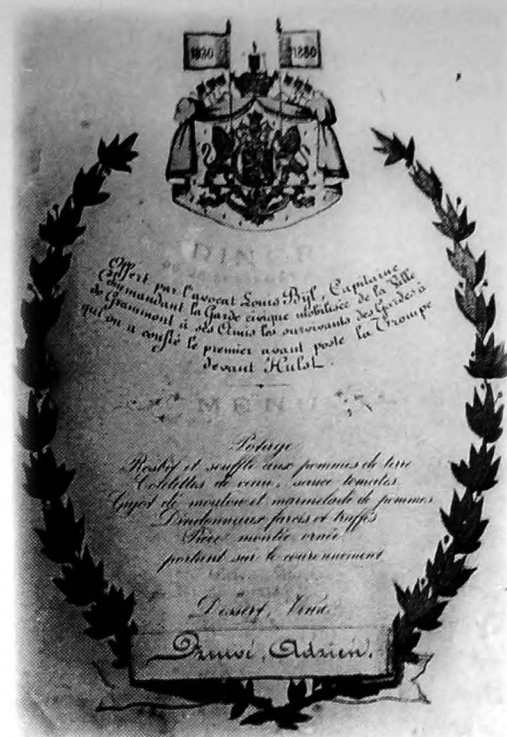 1830 1880
DINER
Offert par l'avocat Louis Byl, Capitaine
Commandant la Garde civique mobilisée de la Ville
de Grammont à ses Amis les survivants des Gardes à
qui on a confié le premier avant poste la Trompe
devant Hulst
MENU
Potage
Rosbif et souffle aux pommes de terre
Cotelettes de veau, sauce tomates
Gigot de mouton et marmelade de pommes
Dindonnaux farcis et truffés
Pièce montée ornée
portant sur le couronnement
Dessert, Vins
Adrien.